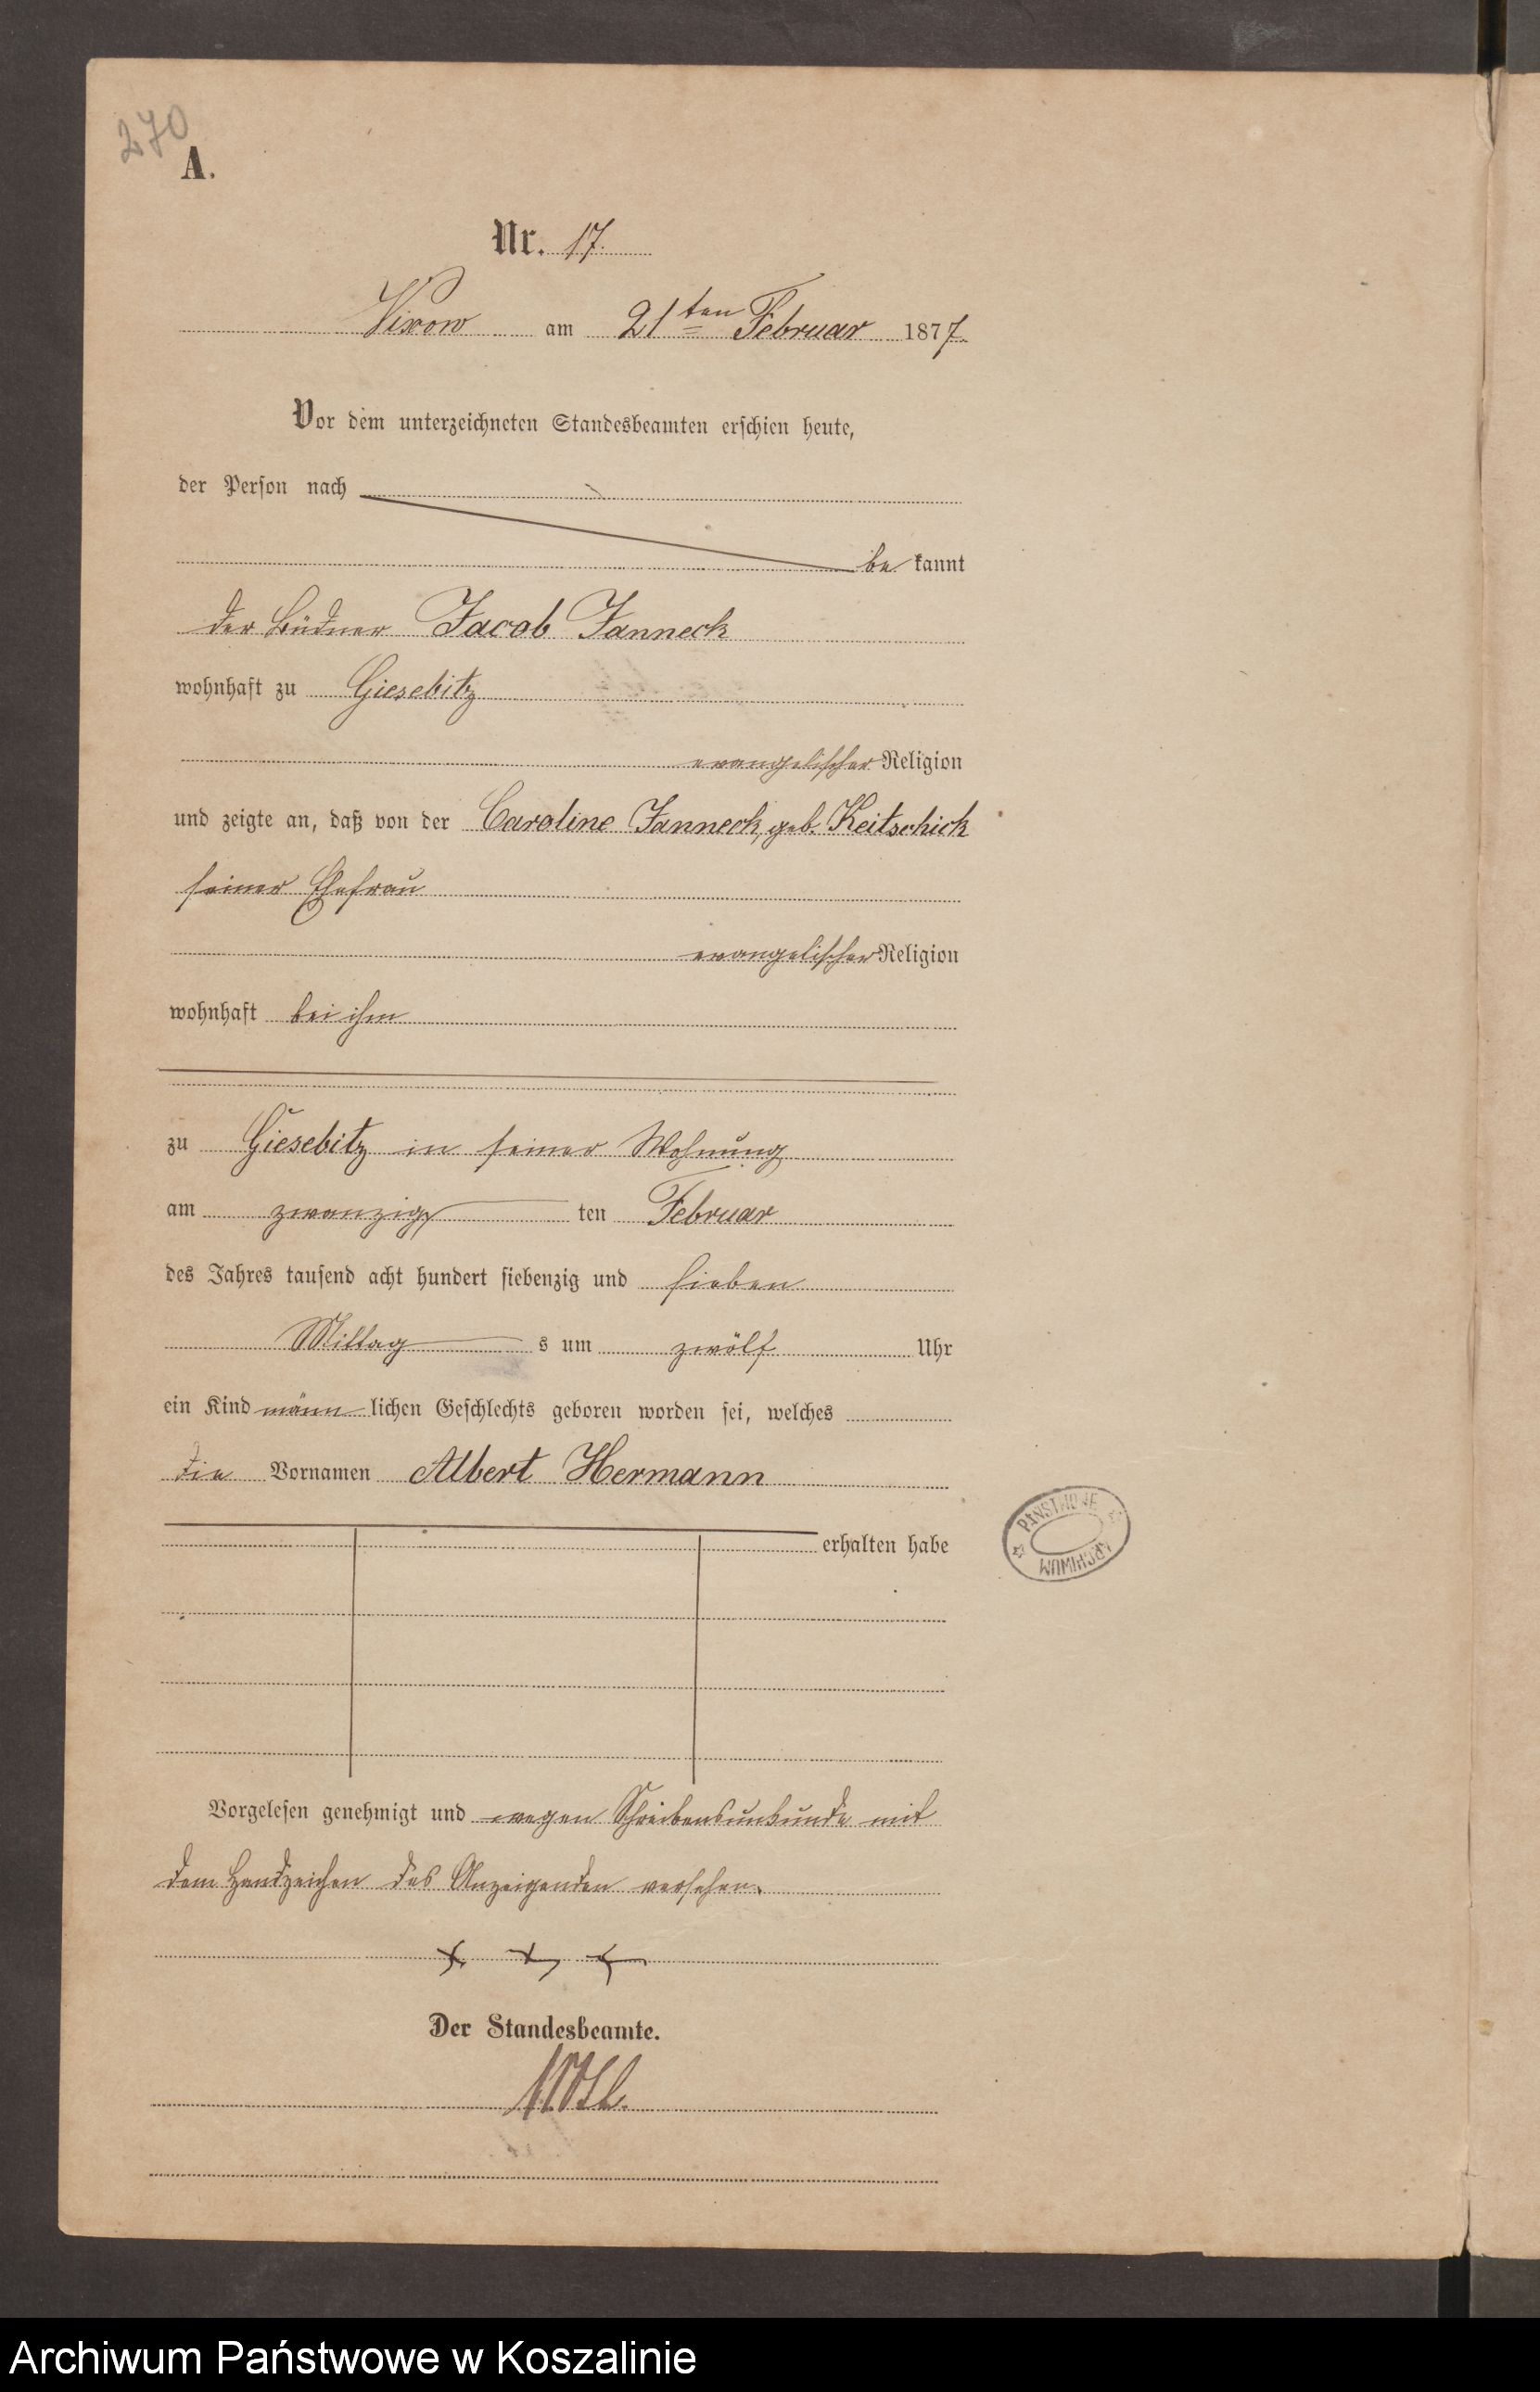 270
A.
Nr. 17.
Vixow am 21ten Februar 1877.
Vor dem unterzeichneten Standesbeamten erschien heute,
der Person nach
be kannt
der Büdner Jacob Janneck
wohnhaft zu Giesebitz
evangelischer Religion
und zeigte an, daß von der Caroline Janneck, geb. Keitschick
seiner Ehefrau
evangelischer Religion
wohnhaft bei ihm
zu Giesebitz in seiner Wohnung
am zwanzig ten Februar
des Jahres tausend acht hundert siebenzig und sieben
Mittag s um zwölf Uhr
ein Kind männ lichen Geschlechts geboren worden sei, welches
die Vornamen Albert Hermann
erhalten habe
PAŃSTWOWE ARCHIWUM
Vorgelesen genehmigt und wegen Schreibensunkunde mit
dem Handzeichen des Anzeigenden versehen.
+ + +
Der Standesbeamte.
Archiwum Państwowe w Koszalinie